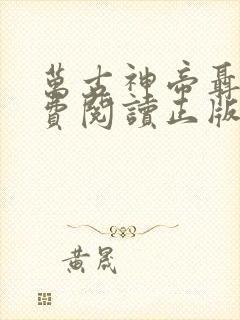 萬古神帝聶
費閱讀正版
黃晟